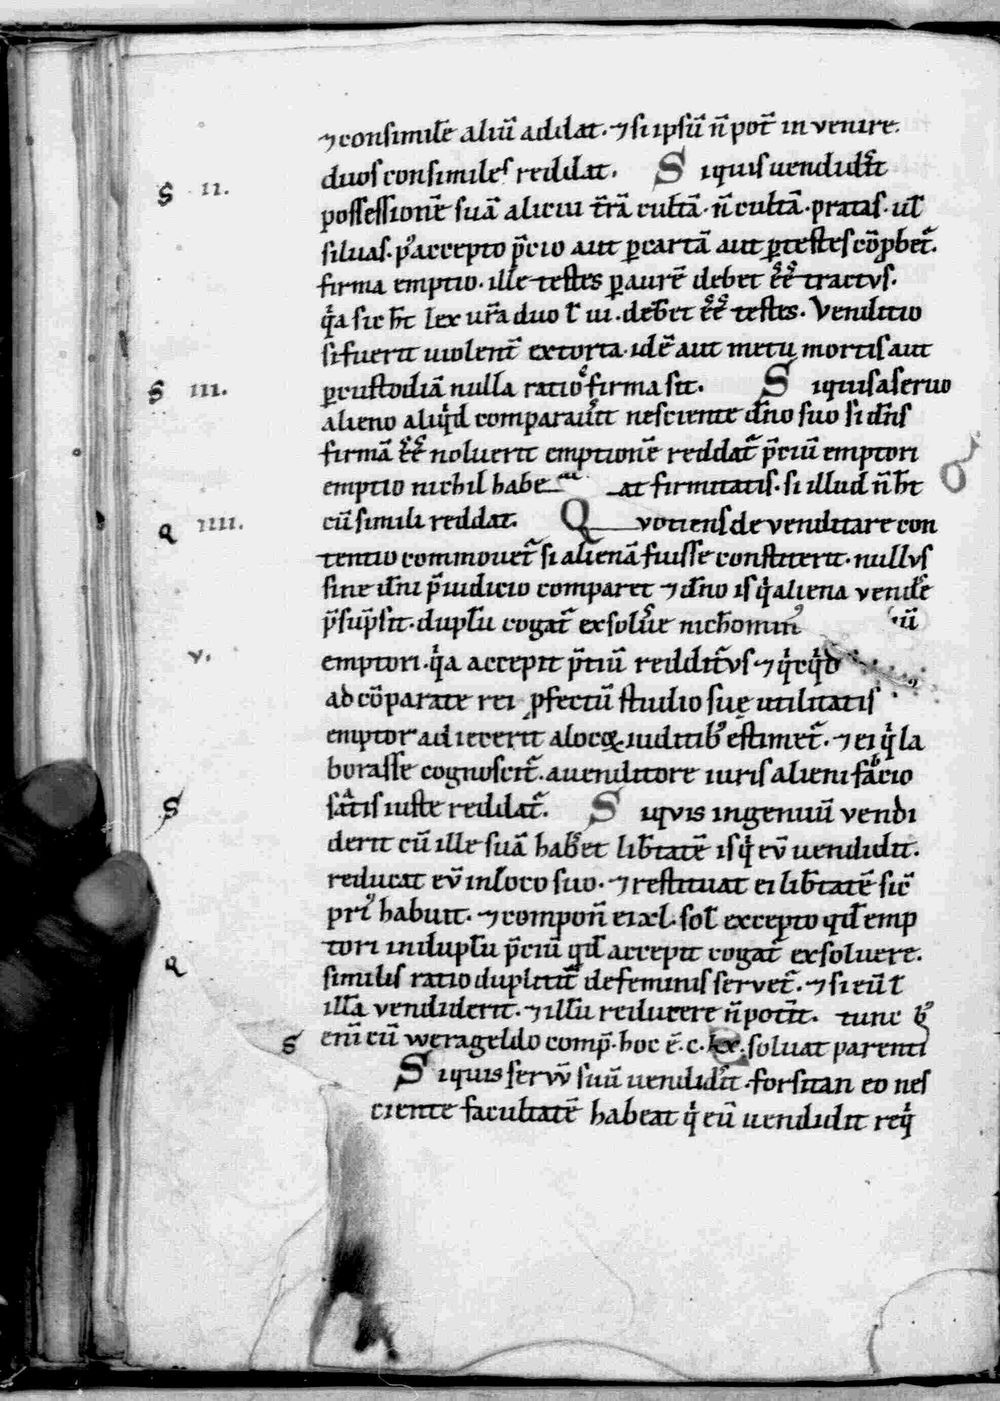 ⁊ consimilē aliū addat· ⁊ si ipsū n̄ pot̄ in venire·
S· II· duos consimiles reddat· Siquis uendid̄it
possessionē suā alicui t̄rā cultā· n̄ cultā· pratas· ul̄
siluas· p' accepto p̄cio aut ꝑ cartā aut ꝑ testes cōprobet̄·
firma emptio· ille testes ꝑ aurē debet ēē tractus·
q̄a sic h̄t lex ur̄a duo l̄ iii· debet ēē testes· Venditio
si fuerit uiolent̄ extorta· idē aut metu mortis aut
S· III· ꝑ custodiā nulla ratiōe firma sit· Siquis a seruo
alieno aliq̄d comparau̅it nesciente dn̄o suo si dn̄s
firmā ēē noluerit emptionē reddat̄ p̄ciū emptori
emptio nichil habe at firmitatis· si illud n̄ h̄t
Q IIII· cū simili reddat· Quotiens de venditare con
tentio commouet̄ si alienā fuisse constiterit· nullus
sine dn̄i p̄iudicio comparet ⁊ dn̄o is q̄ aliena vendē
p̄sūpsit· duplū cogat̄ exsolūe nichomin' ·ū
V· emptori· q̄a accepit p̄tiū redditus ⁊ q̄cq̄d
ad cōparate rei ꝓfectū studio sue utilitatis
emptor adiecerit a locoꝝ iuditib' estimet̄· ⁊ ei q̄ la
borasse cognoscit̄· a uenditore iuris alieni facio
S sāatis iuste reddat̄· Siquis ingenuū vendi
derit cū ille suā hab̄et lib̄tatē is q̄ eū uendidit·
reducat eū in loco suo· ⁊ restituat ei lib̄tatē sic̄
pri' habuit· ⁊ compon̄ ei xl· sol̄ excepto qd̄ emp
tori in duplū p̄ciū qd̄ accepit cogat̄ exsoluere·
Q similis ratio duplicit̄ de feminis seruet̄· ⁊ si eū l̄
illā vendiderit· ⁊ illū reducere n̄ pot̄it· tunc
S enī eū werageldo comp̄· hoc ē· c· lxx· soluat parenti
Siquis seruū suū uendid̄it· forsitan eo nes
ciente facultatē habeat q̄ eū uendidit req̄